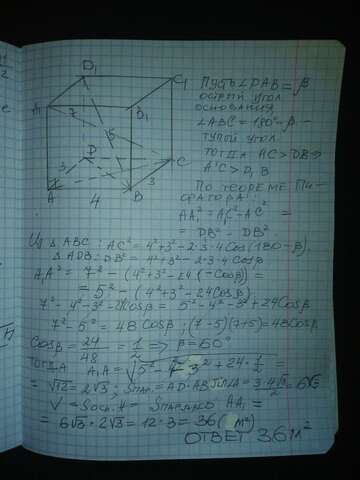 D₁
C₁
A₁
7
B₁
5
D
C
3
3
A
4
B
ПУСТЬ ∠DAB = β
ОСТРЫЙ УГОЛ
ОСНОВАНИЯ
∠ABC = 180° - β -
ТУПОЙ УГОЛ.
ТОГДА AC > DB ⇒
A'C > D₁B
ПО ТЕОРЕМЕ ПИ-
ФАГОРА:
AA₁² = A₁C² - AC² =
= DB² - DB²
ИЗ ΔABC: AC² = 4² + 3² - 2·3·4 Cos(180 - β)
ΔADB: DB² = 4² + 3² - 2·3·4 Cosβ
A₁A² = 7² - (4² + 3² - 24(-Cosβ)) =
= 5² - (4² + 3² - 24Cosβ)
7² - 4² - 3² - 24Cosβ = 5² - 4² - 3² + 24Cosβ
7² - 5² = 48 Cosβ; (7-5)(7+5) = 48Cosβ
Cosβ = 24/48 = 1/2 ⇒ β = 60°
ТОГДА A₁A = √(5² - 4² - 3² + 24·1/2) =
= √12 = 2√3; Sпар. = AD·AB = 3·4√3/2 = 6√3
V = Sосн.·H = Sпар. AA₁ =
= 6√3·2√3 = 12·3 = 36 (м²)
ОТВЕТ 36 м²